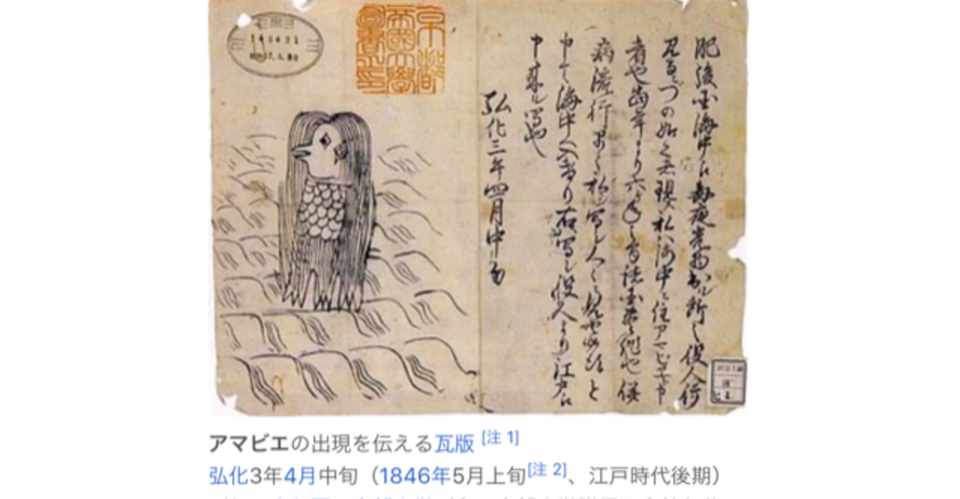 肥後国海中え毎夜光物出ル所之役人行
見るニづの如く者現ス私ハ海中ニ住アマビヱト申
者也当年より六ヶ年之間諸国豊作也併
病流行早々私ヲ写シ人々ニ見セ候得と
申て海中へ入けり右写シ役人より江戸え
申来ル写也
弘化三年四月中旬
京都
帝國大學
圖書之印
アマビエの出現を伝える瓦版 [注 1]
弘化3年4月中旬（1846年5月上旬[注 2]、江戸時代後期）